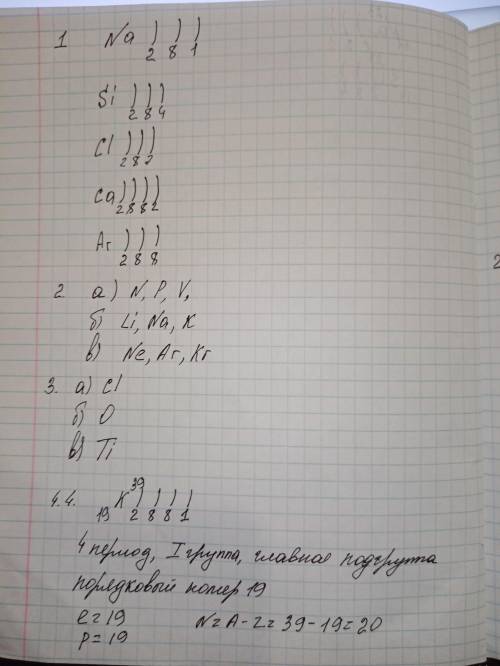 1 Na ) ) )
2 8 1
Si ) ) )
2 8 4
Cl ) ) )
2 8 7
Ca ) ) ) )
2 8 8 2
Ar ) ) )
2 8 8
2. а) N, P, V,
б) Li, Na, K
в) Ne, Ar, Kr
3. а) Cl
б) O
в) Ti
4.4. 19 K 39 ) ) ) )
2 8 8 1
4 период, I группа, главное подгруппа
порядковый номер 19
e = 19 N = A - Z = 39 - 19 = 20
p = 19